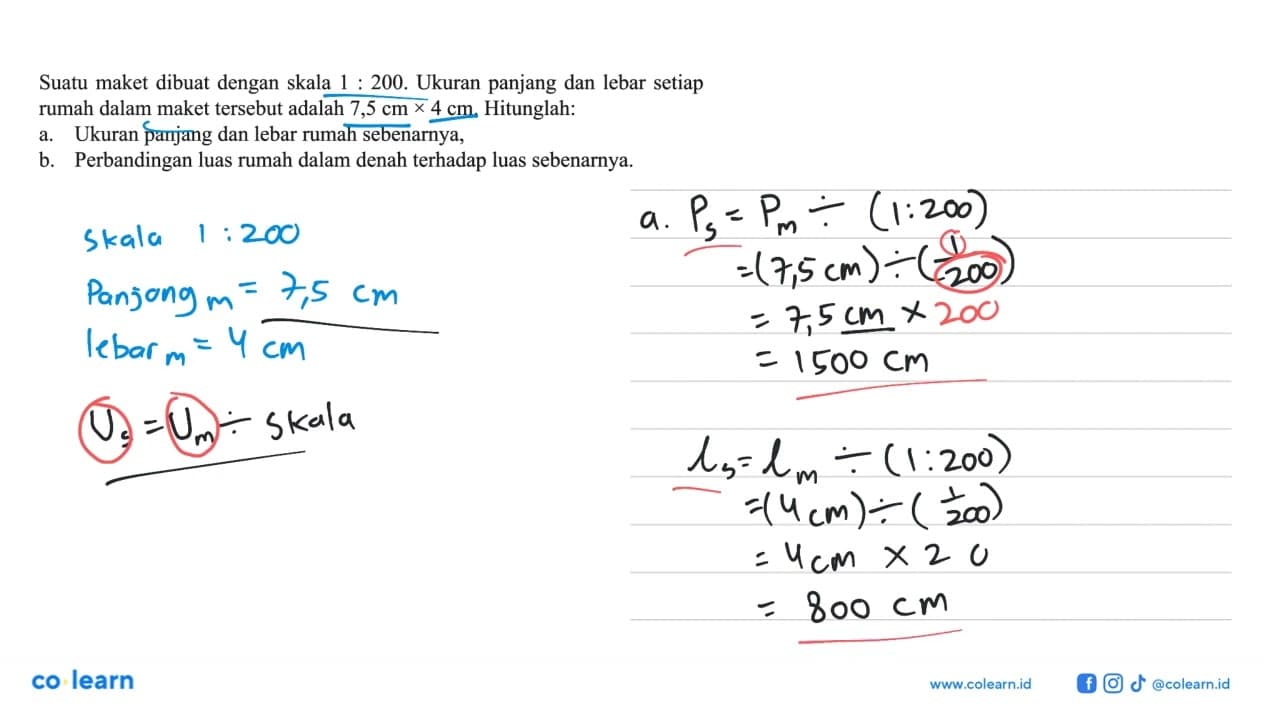 Suatu maket dibuat dengan skala 1 : 200. Ukuran panjang dan lebar setiap
rumah dalam maket tersebut adalah 7,5 cm × 4 cm. Hitunglah:
a. Ukuran panjang dan lebar rumah sebenarnya,
b. Perbandingan luas rumah dalam denah terhadap luas sebenarnya.
Skala 1 : 200
Panjang m = 7,5 cm
lebar m = 4 cm
Us = Um ÷ skala
a. Ps = Pm ÷ (1:200)
=(7,5 cm) ÷ (1/200)
= 7,5 cm × 200
= 1500 cm
ls = lm ÷ (1:200)
=(4 cm) ÷ (1/200)
= 4 cm × 2 0
= 800 cm
co learn
www.colearn.id
@colearn.id